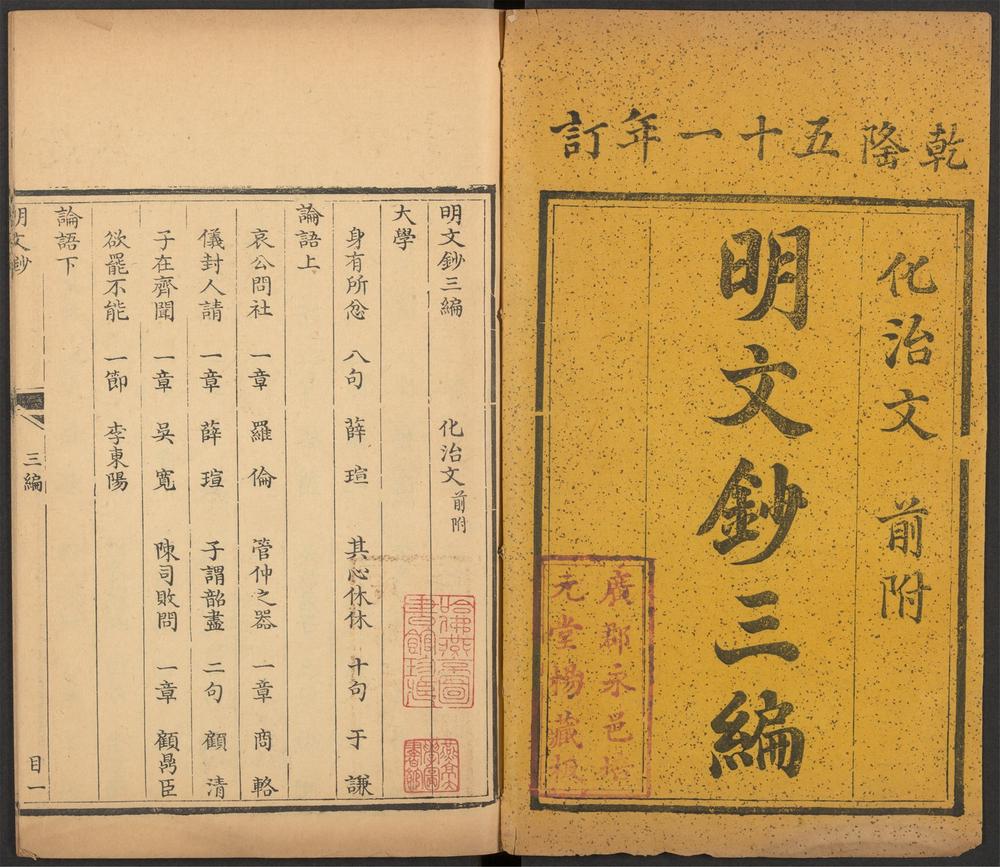 乾隆五十一年訂
化治文 前附
明文鈔三編
廣郡永邑
元堂楊藏板
明文鈔三編 化治文 前附
大學
身有所忿 八句 薛瑄 其心休休 十句 于謙
論語上
哀公問社 一章 羅倫 管仲之器 一章 商輅
儀封人請 一章 薛瑄 子謂韶盡 二句 顧清
子在齊聞 一章 吳寬 陳司敗問 一章 顧鼎臣
欲罷不能 一節 李東陽
論語下
明文鈔 三編 目一
哈佛燕京圖書館珍藏